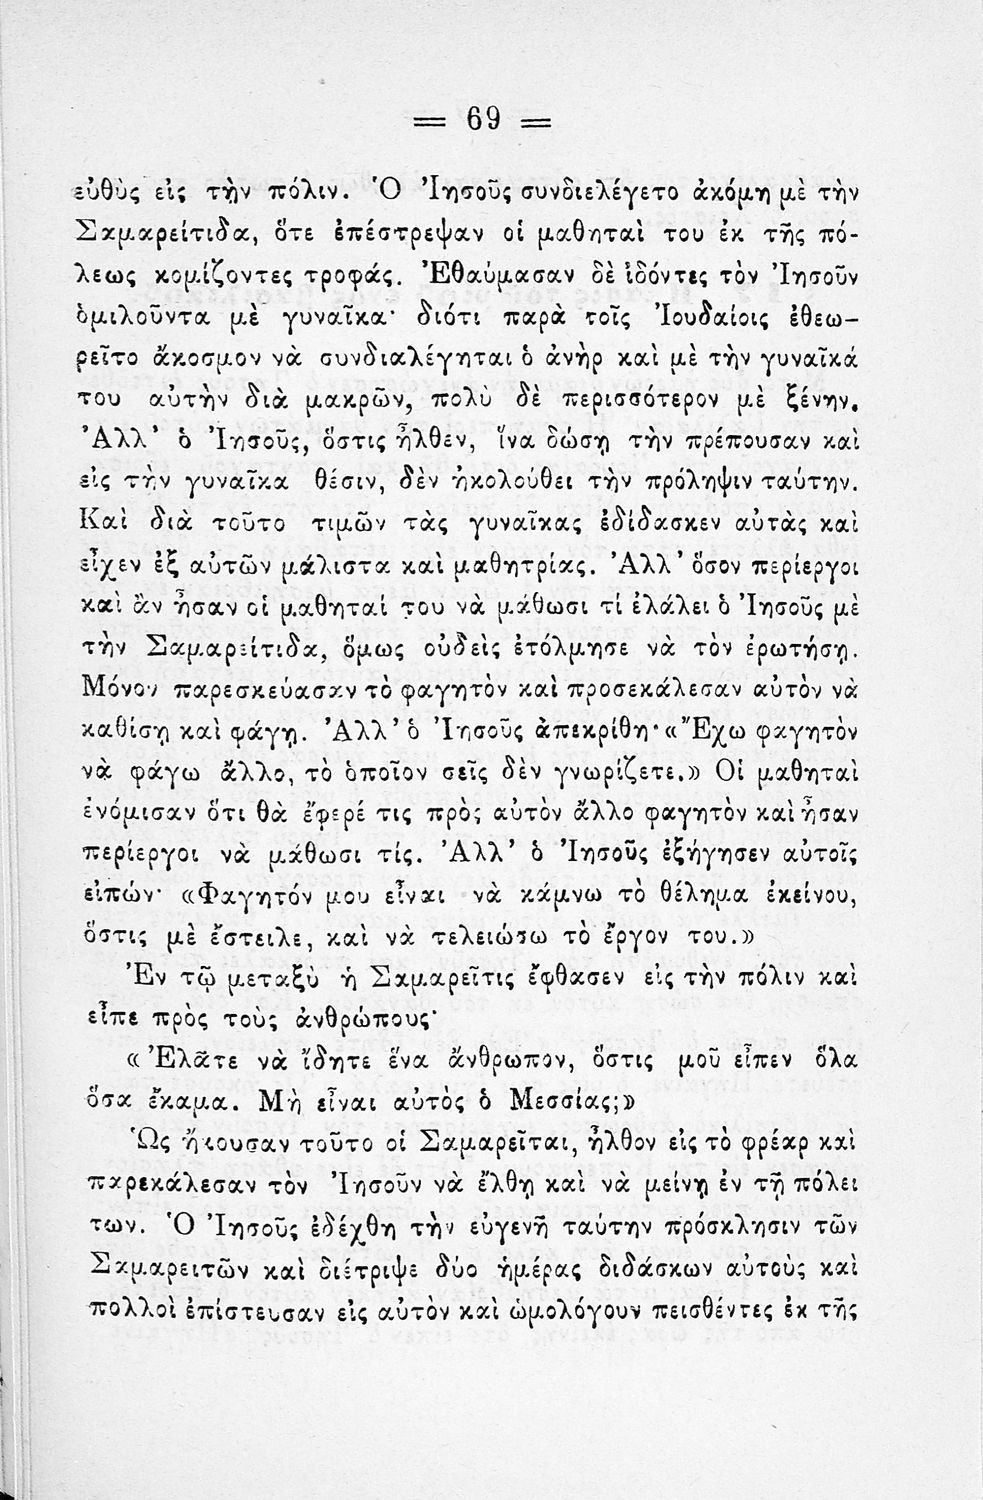 = 69 =
εὐθὺς εἰς τὴν πόλιν. Ὁ Ἰησοῦς συνδιελέγετο ἀκόμη μὲ τὴν
Σαμαρείτιδα, ὅτε ἐπέστρεψαν οἱ μαθηταὶ του ἐκ τῆς πό-
λεως κομίζοντες τροφάς. Ἐθαύμασαν δὲ ἰδόντες τὸν Ἰησοῦν
ὁμιλοῦντα μὲ γυναῖκα· διότι παρὰ τοῖς Ἰουδαίοις ἐθεω-
ρεῖτο ἄκοσμον νὰ συνδιαλέγηται ὁ ἀνὴρ καὶ μὲ τὴν γυναῖκά
του αὐτὴν διὰ μακρῶν, πολὺ δὲ περισσότερον μὲ ξένην.
Ἀλλ’ ὁ Ἰησοῦς, ὅστις ἦλθεν, ἵνα δώσῃ τὴν πρέπουσαν καὶ
εἰς τὴν γυναῖκα θέσιν, δὲν ἠκολούθει τὴν πρόληψιν ταύτην.
Καὶ διὰ τοῦτο τιμῶν τὰς γυναῖκας ἐδίδασκεν αὐτὰς καὶ
εἶχεν ἐξ αὐτῶν μάλιστα καὶ μαθητρίας. Ἀλλ’ ὅσον περίεργοι
καὶ ἂν ἦσαν οἱ μαθηταί του νὰ μάθωσι τί ἐλάλει ὁ Ἰησοῦς μὲ
τὴν Σαμαρείτιδα, ὅμως οὐδεὶς ἐτόλμησε νὰ τὸν ἐρωτήσῃ.
Μόνον παρεσκεύασαν τὸ φαγητὸν καὶ προσεκάλεσαν αὐτὸν νὰ
καθίσῃ καὶ φάγῃ. Ἀλλ’ ὁ Ἰησοῦς ἀπεκρίθη· «Ἔχω φαγητὸν
νὰ φάγω ἄλλο, τὸ ὁποῖον σεῖς δὲν γνωρίζετε.» Οἱ μαθηταὶ
ἐνόμισαν ὅτι θὰ ἔφερέ τις πρὸς αὐτὸν ἄλλο φαγητὸν καὶ ἦσαν
περίεργοι νὰ μάθωσι τίς. Ἀλλ’ ὁ Ἰησοῦς ἐξήγησεν αὐτοῖς
εἰπών· «Φαγητόν μου εἶναι νὰ κάμνω τὸ θέλημα ἐκείνου,
ὅστις μὲ ἔστειλε, καὶ νὰ τελειώσω τὸ ἔργον του.»
Ἐν τῷ μεταξὺ ἡ Σαμαρεῖτις ἔφθασεν εἰς τὴν πόλιν καὶ
εἶπε πρὸς τοὺς ἀνθρώπους·
«Ἐλᾶτε νὰ ἴδητε ἕνα ἄνθρωπον, ὅστις μοῦ εἶπεν ὅλα
ὅσα ἔκαμα. Μὴ εἶναι αὐτὸς ὁ Μεσσίας;»
Ὡς ἤκουσαν τοῦτο οἱ Σαμαρεῖται, ἦλθον εἰς τὸ φρέαρ καὶ
παρεκάλεσαν τὸν Ἰησοῦν νὰ ἔλθῃ καὶ νὰ μείνῃ ἐν τῇ πόλει
των. Ὁ Ἰησοῦς ἐδέχθη τὴν εὐγενῆ ταύτην πρόσκλησιν τῶν
Σαμαρειτῶν καὶ διέτριψε δύο ἡμέρας διδάσκων αὐτοὺς καὶ
πολλοὶ ἐπίστευσαν εἰς αὐτὸν καὶ ὡμολόγουν πεισθέντες ἐκ τῆς